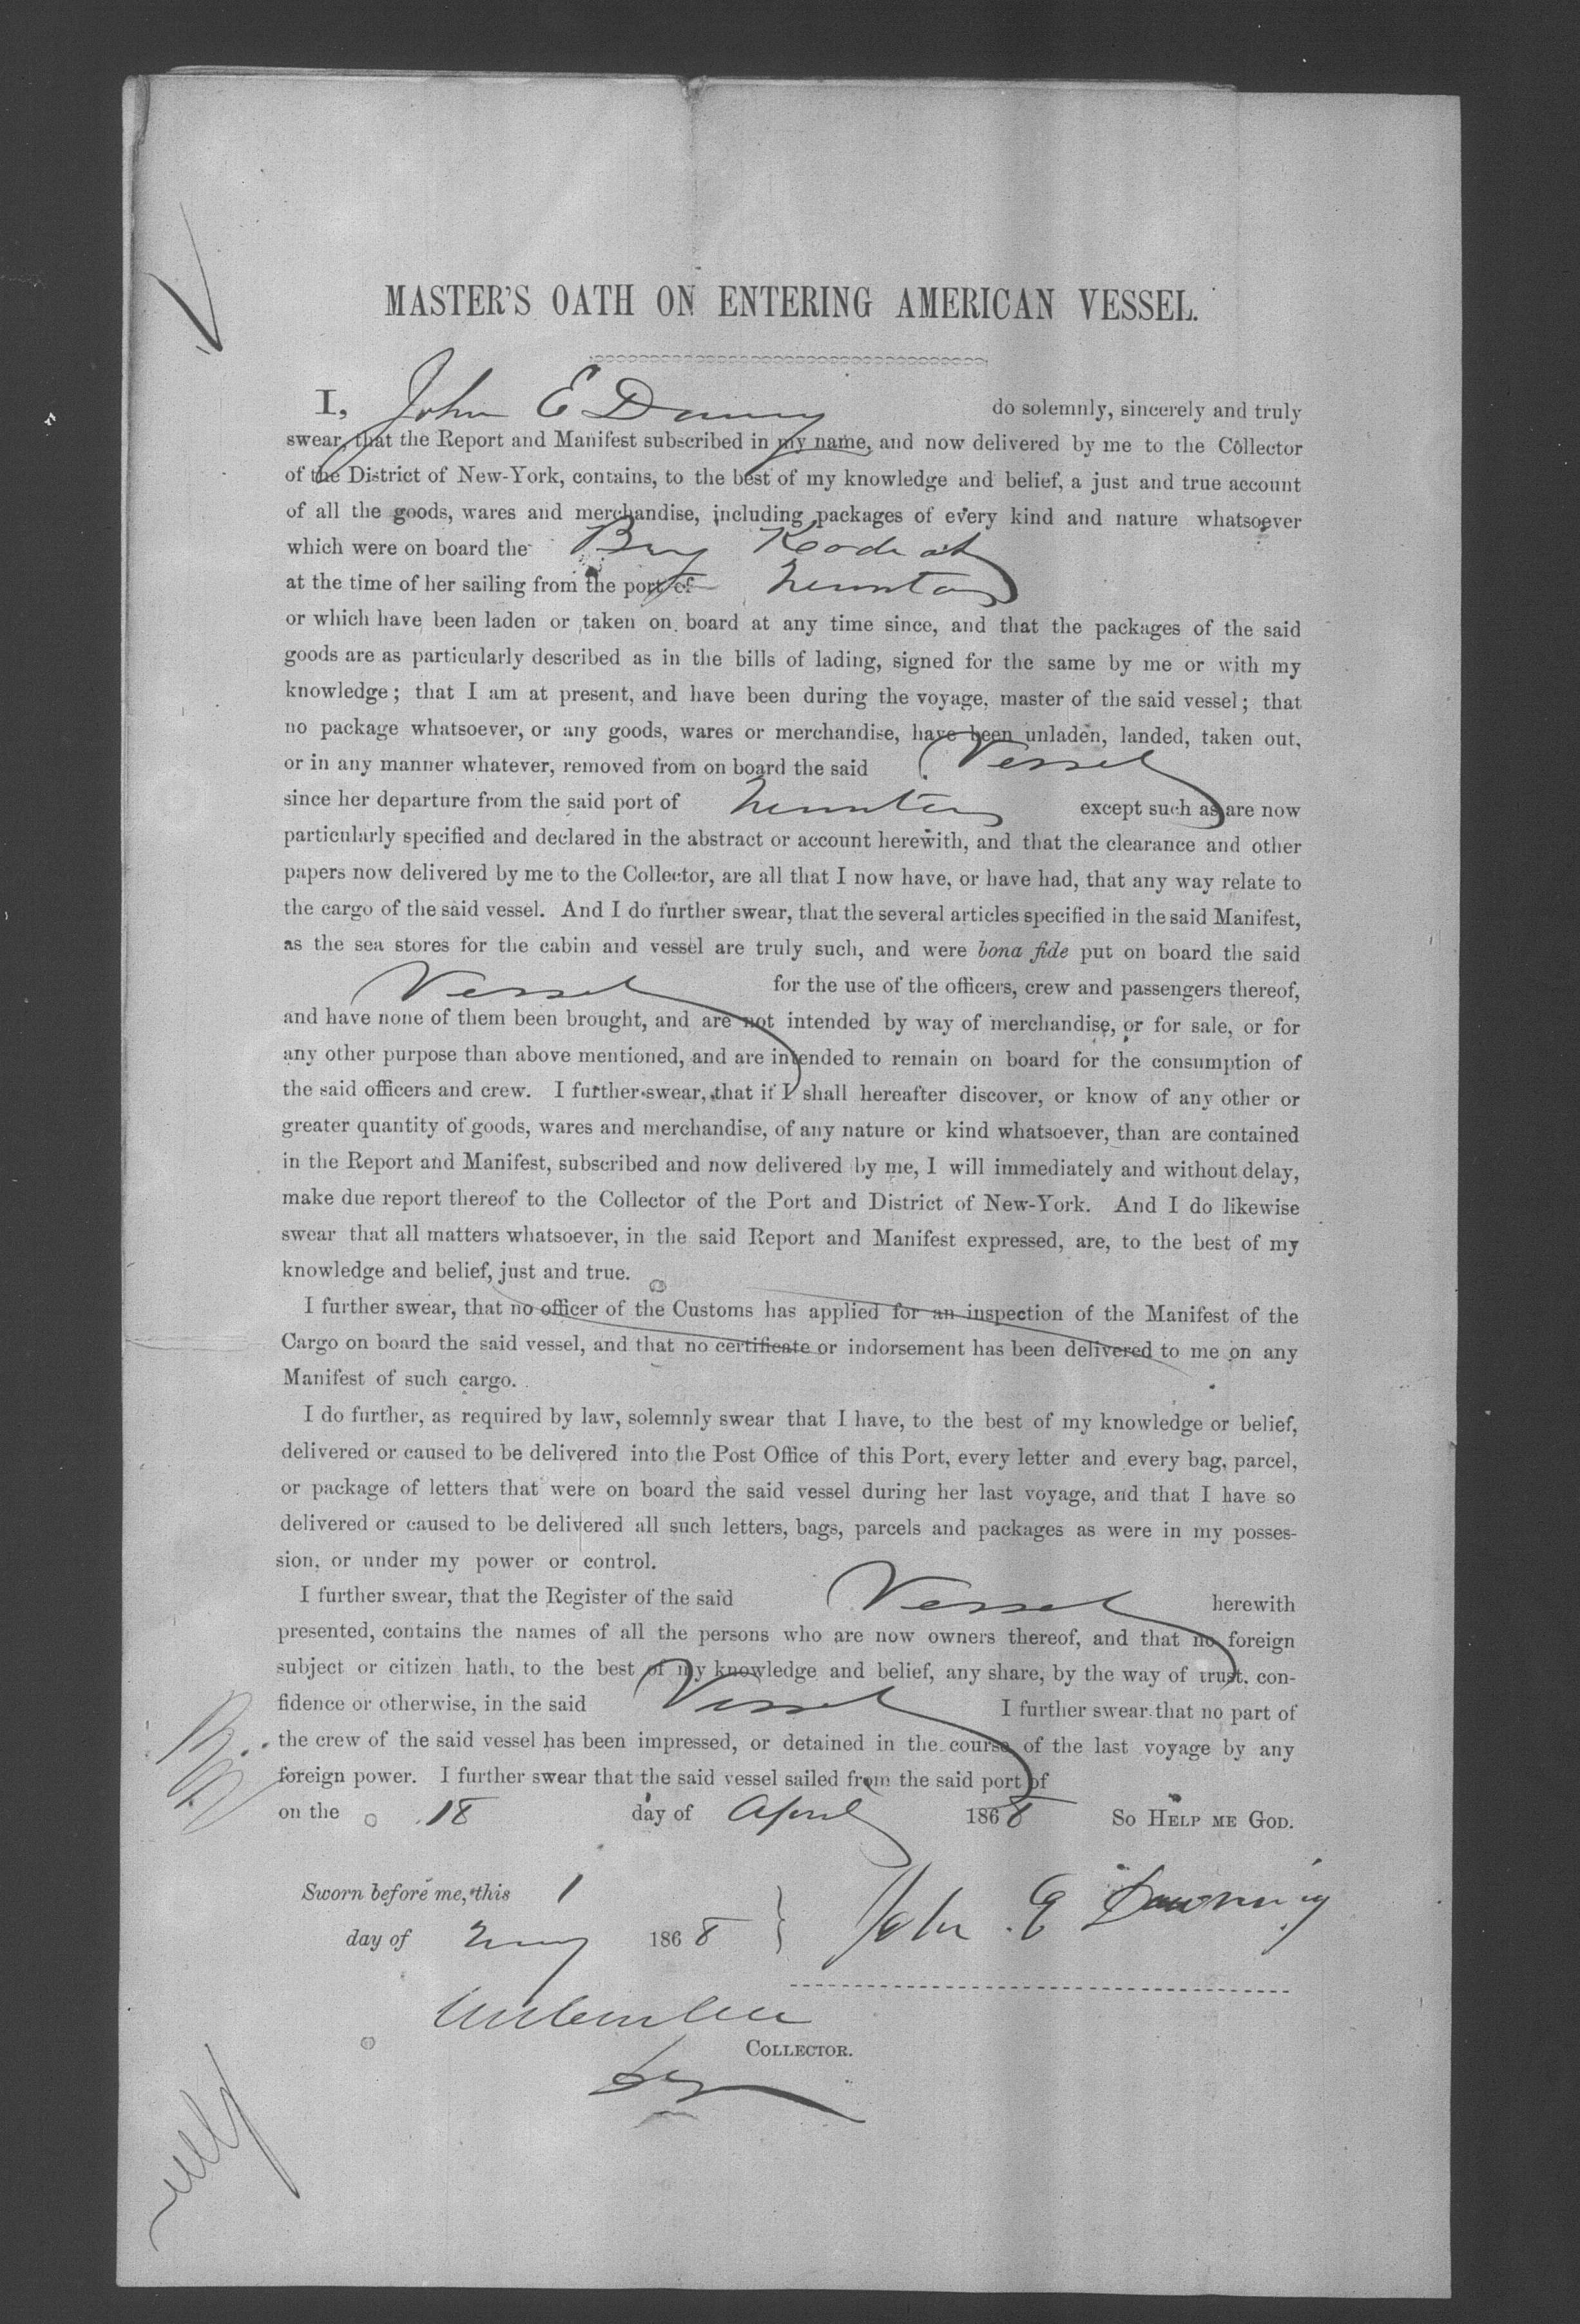 MASTER'S OATH ON ENTERING AMERICAN VESSEL.
I, John E Downing do solemnly, sincerely and truly
swear, that the Report and Manifest subscribed in my name, and now delivered by me to the Collector
of the District of New-York, contains, to the best of my knowledge and belief, a just and true account
of all the goods, wares and merchandise, including packages of every kind and nature whatsoever
which were on board the Brig
at the time of her sailing from the port of
or which have been laden or taken on board at any time since, and that the packages of the said
goods are as particularly described as in the bills of lading, signed for the same by me or with my
knowledge; that I am at present, and have been during the voyage, master of the said vessel; that
no package whatsoever, or any goods, wares or merchandise, have been unladen, landed, taken out,
or in any manner whatever, removed from on board the said Vessel
since her departure from the said port of except such as are now
particularly specified and declared in the abstract or account herewith, and that the clearance and other
papers now delivered by me to the Collector, are all that I now have, or have had, that any way relate to
the cargo of the said vessel. And I do further swear, that the several articles specified in the said Manifest,
as the sea stores for the cabin and vessel are truly such, and were bona fide put on board the said
Vessel for the use of the officers, crew and passengers thereof,
and have none of them been brought, and are not intended by way of merchandise, or for sale, or for
any other purpose than above mentioned, and are intended to remain on board for the consumption of
the said officers and crew. I further swear, that if I shall hereafter discover, or know of any other or
greater quantity of goods, wares and merchandise, of any nature or kind whatsoever, than are contained
in the Report and Manifest, subscribed and now delivered by me, I will immediately and without delay,
make due report thereof to the Collector of the Port and District of New-York. And I do likewise
swear that all matters whatsoever, in the said Report and Manifest expressed, are, to the best of my
knowledge and belief, just and true.
I further swear, that no officer of the Customs has applied for an inspection of the Manifest of the
Cargo on board the said vessel, and that no certificate or indorsement has been delivered to me on any
Manifest of such cargo.
I do further, as required by law, solemnly swear that I have, to the best of my knowledge or belief,
delivered or caused to be delivered into the Post Office of this Port, every letter and every bag, parcel,
or package of letters that were on board the said vessel during her last voyage, and that I have so
delivered or caused to be delivered all such letters, bags, parcels and packages as were in my posses-
sion, or under my power or control.
I further swear, that the Register of the said Vessel herewith
presented, contains the names of all the persons who are now owners thereof, and that no foreign
subject or citizen hath, to the best of my knowledge and belief, any share, by the way of trust, con-
fidence or otherwise, in the said Vessel I further swear that no part of
the crew of the said vessel has been impressed, or detained in the course of the last voyage by any
foreign power. I further swear that the said vessel sailed from the said port of
on the 18 day of April 1868 SO HELP ME GOD.
Sworn before me, this 1
day of May 1868 } John E Downing
COLLECTOR.